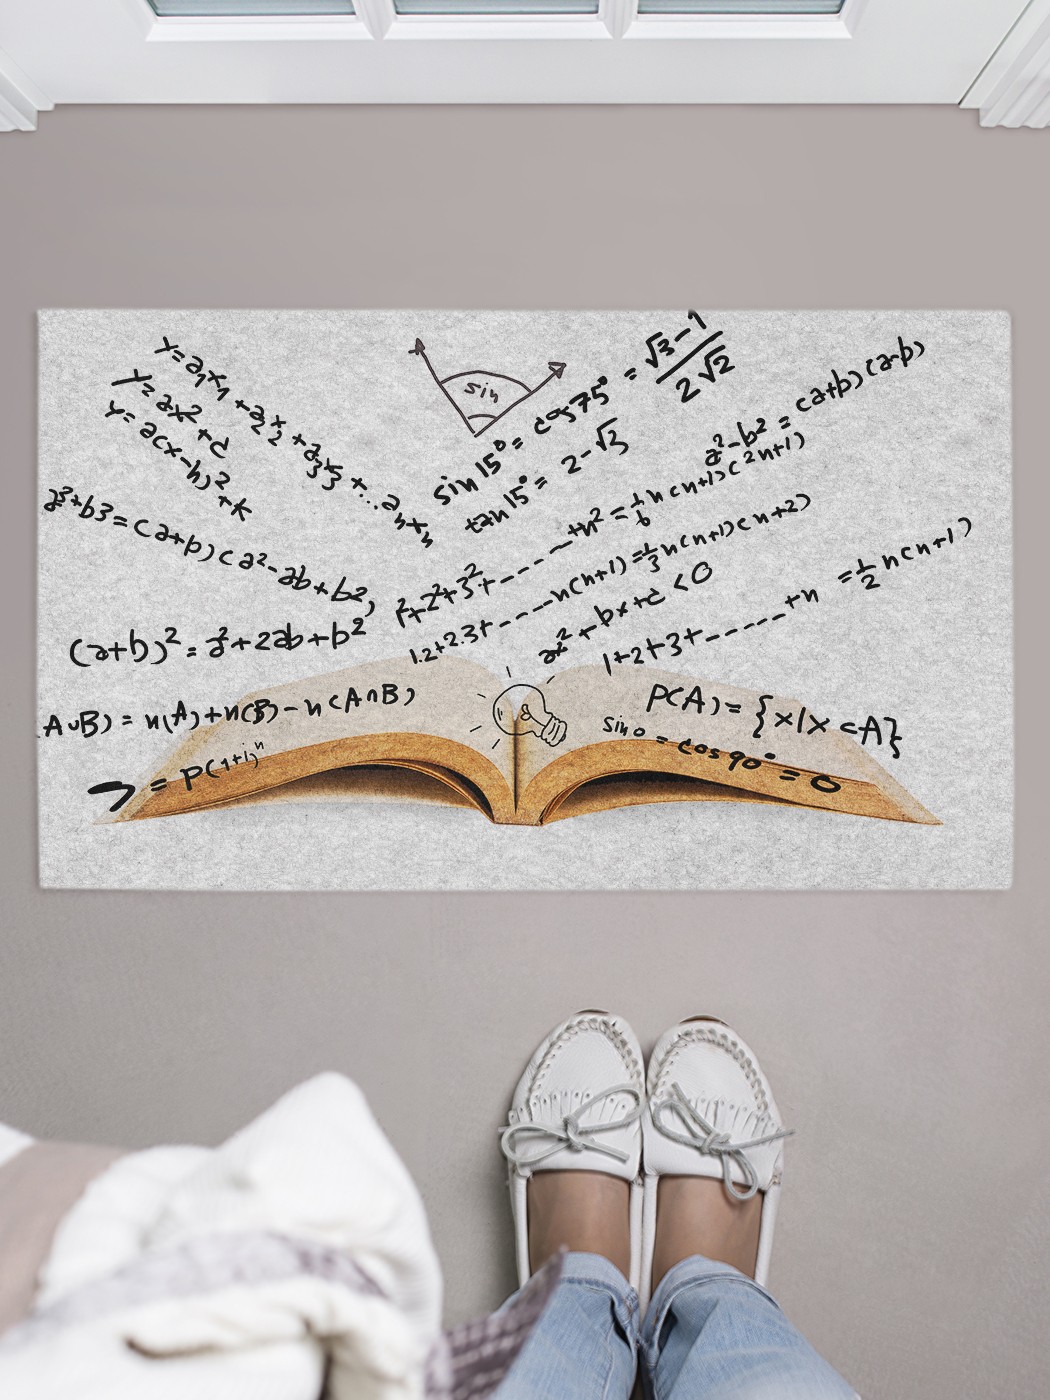 y=a₁x₁+a₂x₂+a₃x₃+...aₙxₙ
y=ax²+c
y=a(x-h)²+k
sin
sin15°=cos75°=√3-1/2√2
tan15°=2-√3
a²-b²=(a+b)(a-b)
a³+b³=(a+b)(a²-ab+b²)
1²+2²+3²+------+n²=1/6n(n+1)(2n+1)
1.2+2.3+-----n(n+1)=1/3n(n+1)(n+2)
ax²+bx+c<0
1+2+3+-----+n=1/2n(n+1)
(a+b)²=a²+2ab+b²
AUB)=n(A)+n(B)-n(A∩B)
P(A)={x/x⊂A}
sin0=cos90°=0
=P(1+i)ⁿ